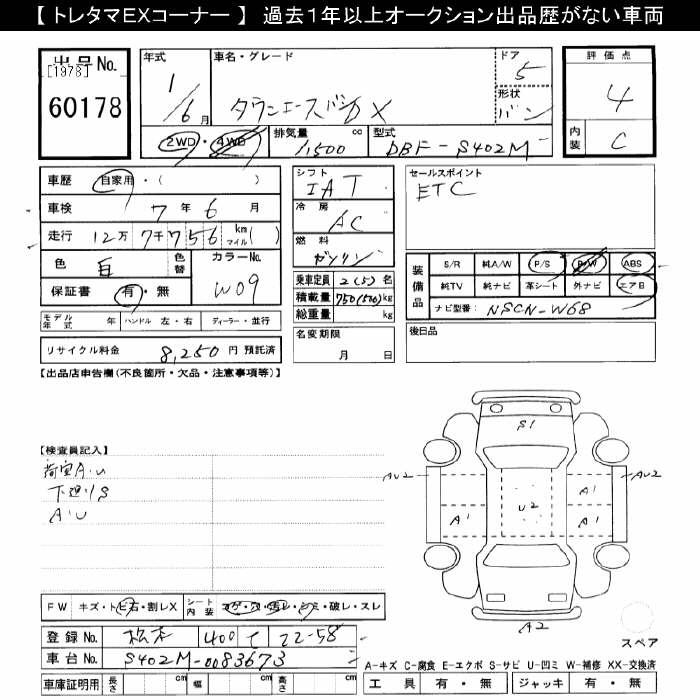 【 トレタマEXコーナー 】 過去1年以上オークション出品歴がない車両
出品No.
[1978]
60178
年式
1/6月
車名・グレード
タウンエースバン DX
ドア
5
形状
バン
評価点
4
内装
C
2WD・4WD
排気量 1500 cc
型式 DBF-S402M
車歴 自家用・( )
車検 7年 6月
走行 12万 7千 756 km マイル( )
色 白 色替 カラーNo. W09
保証書 有・無
モデル年式 年 ハンドル 左・右 ディーラー・並行
リサイクル料金 8,250 円 預託済
シフト
IAT
冷房
AC
燃料
ガソリン
乗車定員 2(5) 名
積載量 750(500)kg
総重量 kg
名変期限
月 日
セールスポイント
ETC
装備品
S/R 純A/W P/S P/W ABS
純TV 純ナビ 革シート 外ナビ エアB
ナビ型番: NSCN-W68
後日品
【出品店申告欄(不良箇所・欠品・注意事項等)】
【検査員記入】
荷室A・U
下廻りS
A・U
S1
AU2
A1
A1
A1
U2
AU2
A2
スペア
FW キズ・トビ石・割レX シート内装 コゲ・穴・汚レ・シミ・破レ・スレ
登録No. 松本 400 て 22-58
車台No. S402M-0083673
車庫証明用 長さ cm 幅 cm 高さ cm
A-キズ C-腐食 E-エクボ S-サビ U-凹ミ W-補修 XX-交換済
工具 有・無 ジャッキ 有・無